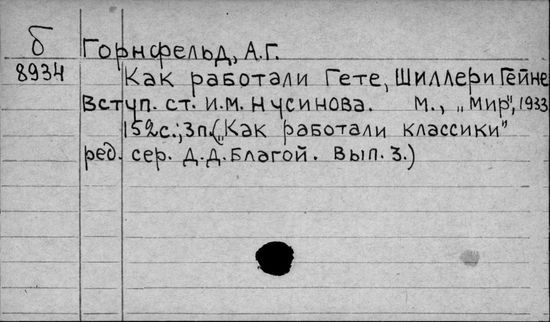 б Горнфельд, А.Г.
8934 Как работали Гете, Шиллер и Гейне
Вступ. ст. И.М. Нусинова. М., „Мир", 1933
152с.; 3 п. („Как работали классики"
ред. сер. Д.Д. Благой. Вып. 3.)